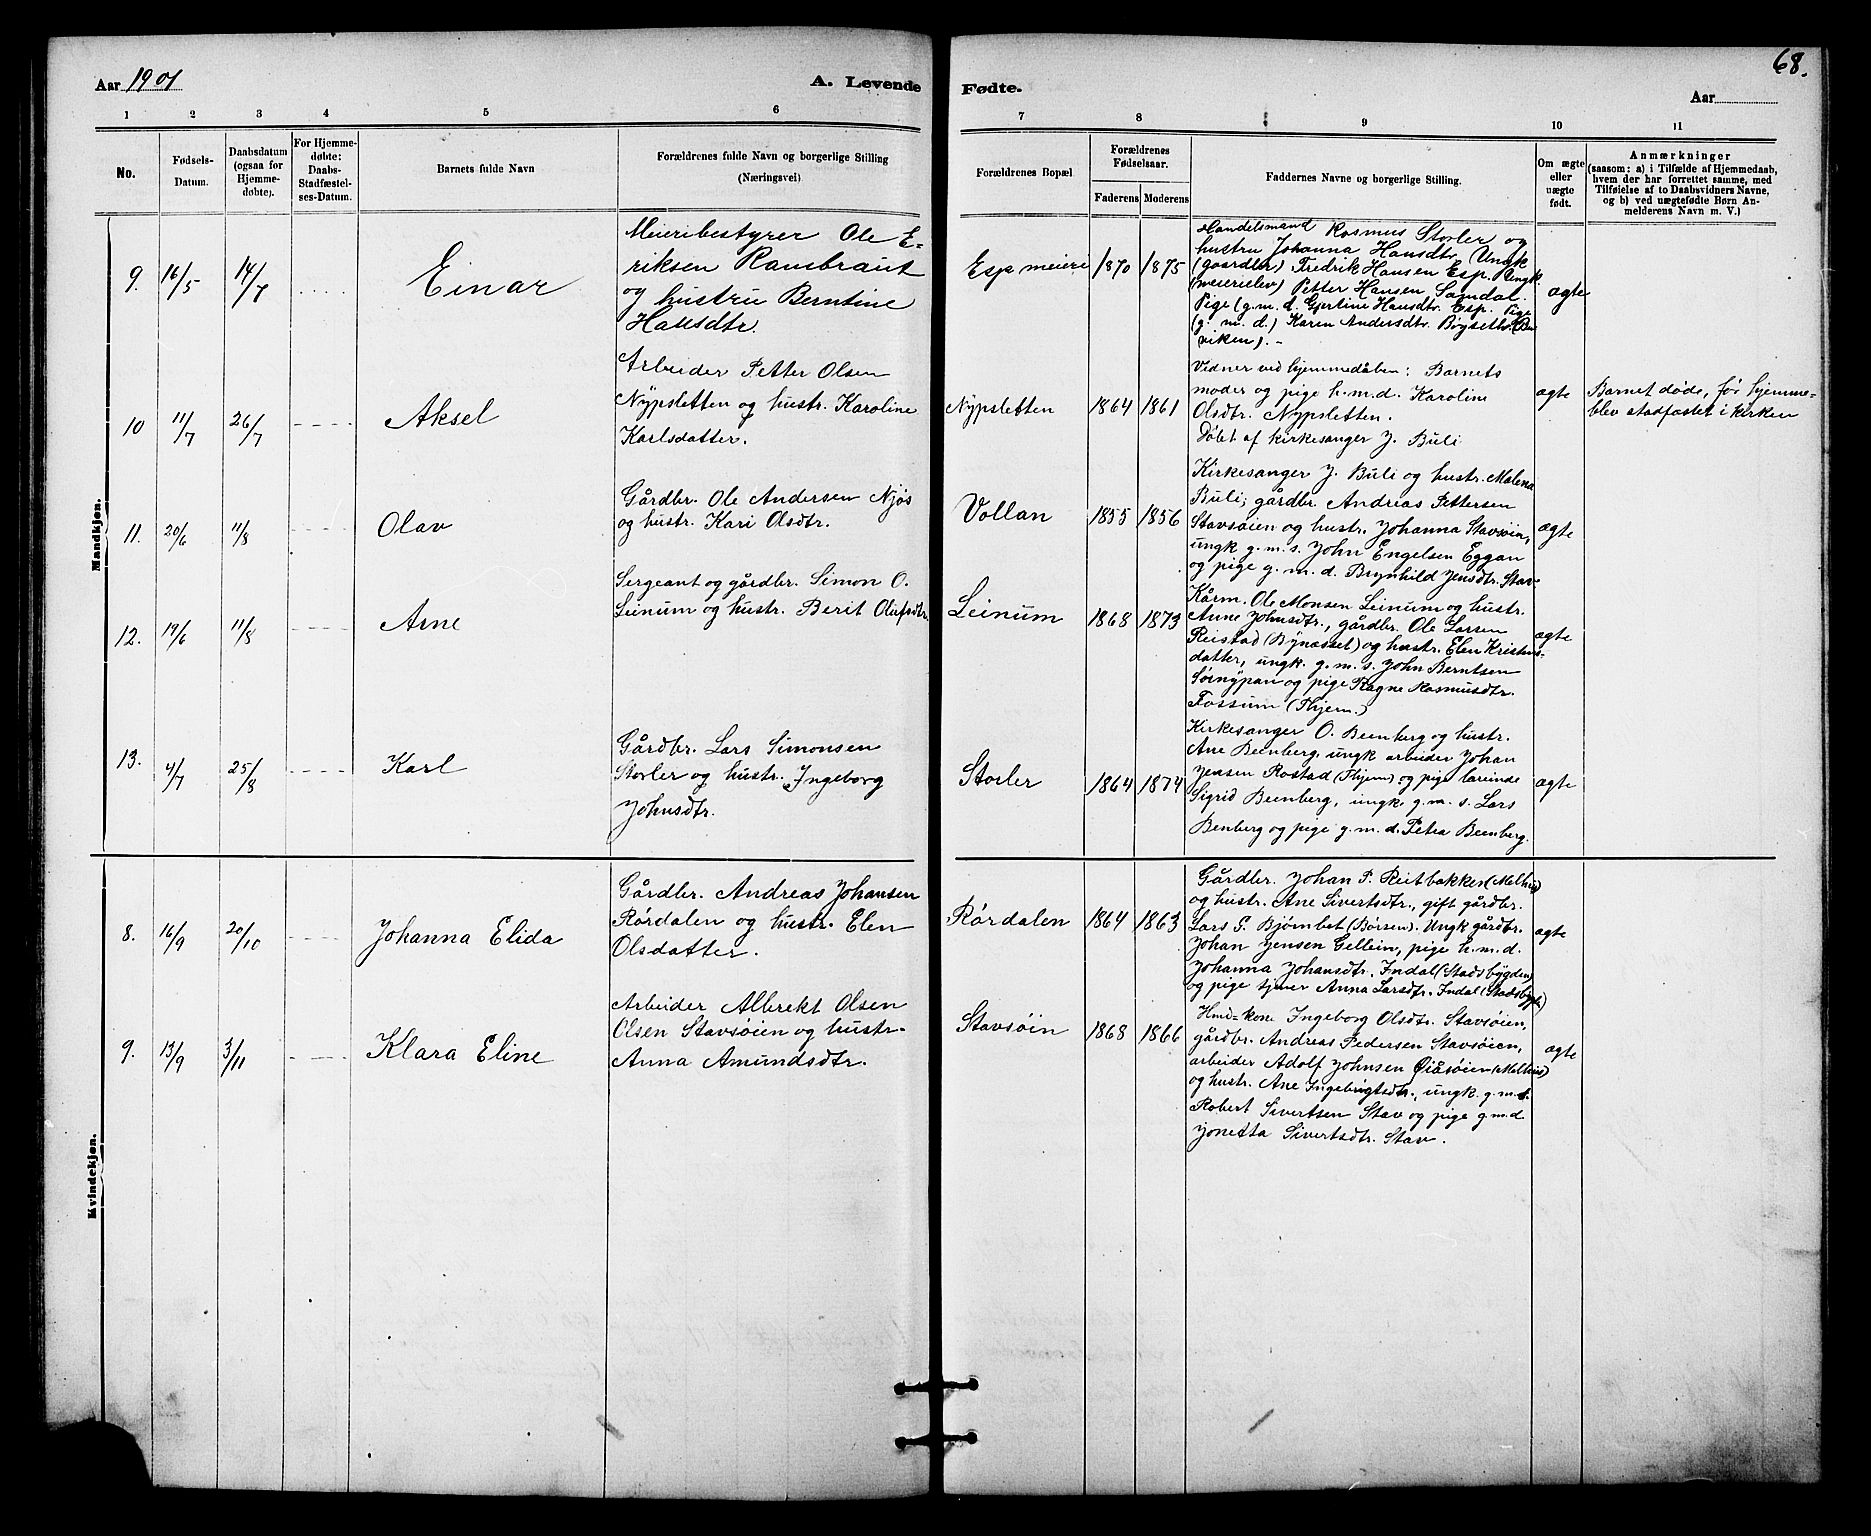 Aar 1901
A. Levende
Fødte.
68.
Aar
1 2 3 4 5 6 7 8 9 10 11
No.
Fødsels-
Datum.
Daabsdatum
(ogsaa for
Hjemme-
døbte).
For Hjemme-
døbte:
Daabs-
Stadfæstel-
ses-Datum.
Barnets fulde Navn
Forældrenes fulde Navn og borgerlige Stilling
(Næringsvei)
Forældrenes Bopæl.
Forældrenes
Fødselsaar.
Faderens Moderens
Faddernes Navne og borgerlige Stilling.
Om ægte
eller
uægte
født.
Anmærkninger
(saasom: a) i Tilfælde af Hjemmedaab,
hvem der har forrettet samme, med
Tilføielse af to Daabsvidners Navne,
og b) ved uægtefødte Børn An-
melderens Navn m. V.)
Mandkjøn.
9. 16/5 14/7 Einar
Meieribestyrer Ole E-
riksen Ransbraut
og hustru Berntine
Hansdtr.
Esp meieri 1870 1875
Handelsmand Rasmus Storler og
hustru Johanna Hansdtr. Ungk
(gaardbr) Fredrik Hansen Esp. Ungk.
(meierielev) Petter Hansen Sandal.
Pige (g.m.d. Gjertine Hansdtr. Esp. Pige
(g. m. d.) Karen Andersdtr. Bøgseth (Bu
viken). -
ægte
10 11/7 26/7 Aksel
Arbeider Petter Olsen
Nypsletten og hustr. Karoline
Karlsdatter.
Nypsletten 1864 1861
Vidner ved hjemmedåben: Barnets
moder og pige h.m.d. Karoline
Olsdtr. Nypsletten.
Døbt af kirkesanger J. Buli
ægte
Barnet døde, før hjemme-
blev stadfæstet i kirken
11. 20/6 11/8 Olav
Gårdbr. Ole Andersen Njøs
og hustr. Kari Olsdtr.
Vollan 1855 1856
Kirkesanger J. Buli og hustr. Malena
Buli; gårdbr. Andreas Pettersen
Stavsøien og hustr. Johanna Stavsøien,
ungk g. m. s. John Engelsen Eggan
og pige g. m. d. Brynhild Jensdtr. Stav
ægte
12. 19/6 11/8 Arne
Sergeant og gårdbr. Simon O.
Leinum og hustr. Berit Olufsdtr
Leinum 1868 1873
Kårm. Ole Monsen Leinum og hustr.
Anne Johnsdtr., gårdbr. Ole Larsen
Reistad (Bynesset) og hustr. Elen Kristens-
datter, ungk. g. m. s. John Berntsen
Søinypan og pige Ragne Rasmusdtr.
Fossum (Thjem.)
ægte
13. 4/7 25/8 Karl
Gårdbr. Lars Simonsen
Storler og hustr. Ingeborg
Johnsdtr.
Storler 1864 1874
Kirkesanger O. Beenberg og hustr.
Ane Beenberg, ungk arbeider Johan
Jensen Rostad (Thjem) og pige læreinde
Sigrid Beenberg, ungk g. m. s. Lars
Benberg og pige g. m. d. Petra Beenberg.
ægte
Kvindekjøn.
8. 16/9 20/10 Johanna Elida
Gårdbr. Andreas Johansen
Rørdalen og hustr. Elen
Olsdatter.
Rørdalen 1864 1863
Gårdbr. Johan P. Reitbakken (Melhus)
og hustr. Ane Sivertsdtr., gift gårdbr.
Lars S. Bjørnbet (Børsen). Ungk gårdbr.
Johan Jensen Gellein, pige h.m.d.
Johanna Johansdtr. Indal (Stadsbygden)
og pige tjener Anna Larsdtr. Indal (Stadsbygd)
ægte
9. 13/9 3/11 Klara Eline
Arbeider Albrekt Olsen
Olsen Stavsøien og hustr.
Anna Amundsdtr.
Stavsøin 1868 1866
Hmd-kone Ingeborg Olsdtr. Stavsøien,
gårdbr. Andreas Pedersen Stavsøien,
arbeider Adolf Johnsen Øiåsøien (Melhus)
og hustr. Ane Ingebrigtsdtr., ungk. g. m. s.
Robert Sivertsen Stav og pige g.m.d
Jonetta Sivertsdtr. Stav.
ægte